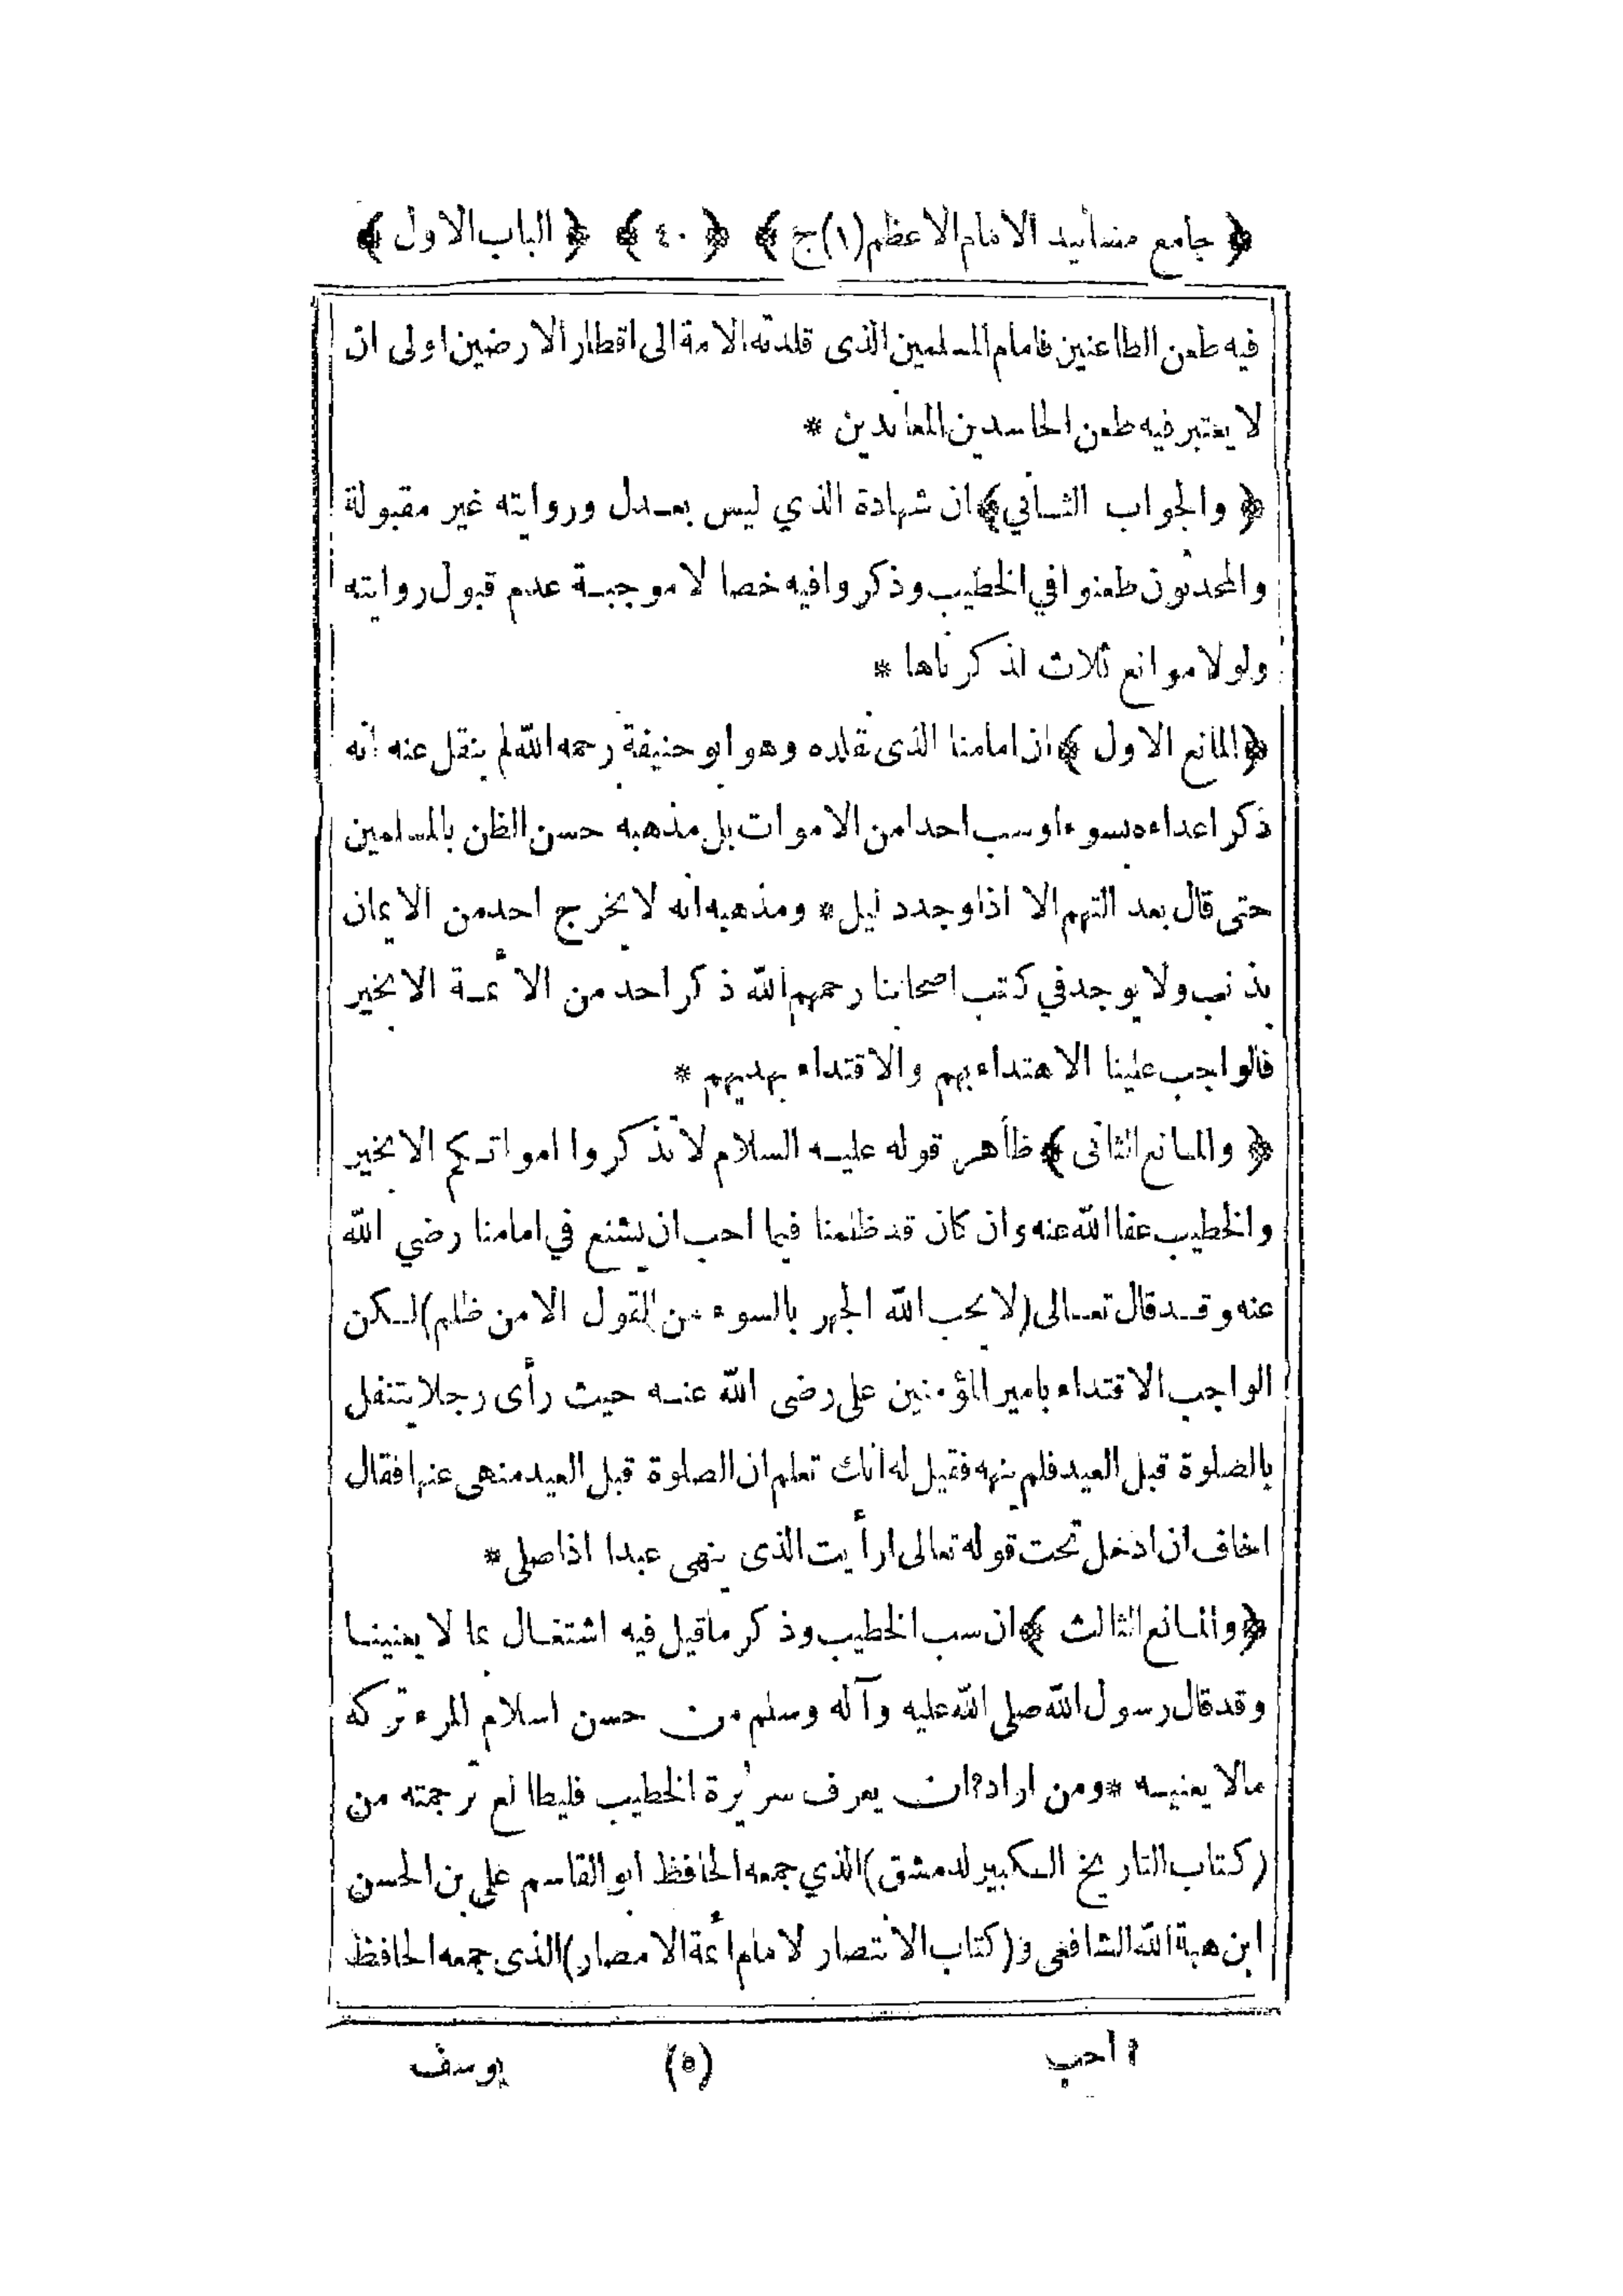 ﴿ جامع مسانيد الامام الاعظم(١)ج ﴾ ﴿ ٤٠ ﴾ ﴿ الباب الاول ﴾
فيه طعن الطاعنين فامام المسلمين الذى قلدته الامة الى اقطار الارضين اولى ان
لا يعتبر فيه طعن الحاسدين المعاندين *
﴿ والجواب الثاني ﴾ ان شهادة الذي ليس بعدل وروايته غير مقبولة
والمحدثون طعنوا في الخطيب وذكروا فيه خصالا موجبة عدم قبول روايته
ولولا موانع ثلاث لذكرناها *
﴿ المانع الاول ﴾ ان امامنا الذى نقلده وهو ابو حنيفة رحمه الله لم ينقل عنه انه
ذكر اعداءه بسوء او سب احدا من الاموات بل مذهبه حسن الظن بالمسلمين
حتى قال بعد التهم الا اذا وجد دليل * ومذهبه انه لا يخرج احد من الايمان
بذنب ولا يوجد في كتب اصحابنا رحمهم الله ذكر احد من الأئمة الا بخير
فالواجب علينا الاهتداء بهم والاقتداء بهديهم *
﴿ والمانع الثانى ﴾ ظاهر قوله عليه السلام لا تذكروا امواتكم الا بخير
والخطيب عفا الله عنه وان كان قد ظلمنا فيما احب ان يشنع في امامنا رضي الله
عنه وقد قال تعالى (لا يحب الله الجهر بالسوء من القول الا من ظلم) لكن
الواجب الاقتداء بامير المؤمنين على رضى الله عنه حيث رأى رجلا يتنفل
بالصلوة قبل العيد فلم ينهه فقيل له انك تعلم ان الصلوة قبل العيد منهى عنها فقال
اخاف ان ادخل تحت قوله تعالى ارأيت الذى ينهى عبدا اذا صلى *
﴿ والمانع الثالث ﴾ ان سب الخطيب وذكر ما قيل فيه اشتغال بما لا يعنينا
وقد قال رسول الله صلى الله عليه وآله وسلم من حسن اسلام المرء تركه
مالا يعنيه * ومن اراد ان يعرف سريرة الخطيب فليطالع ترجمته من
(كتاب التاريخ الكبير لدمشق) الذي جمعه الحافظ ابو القاسم على بن الحسن
ابن هبة الله الشافعى و (كتاب الانتصار لامام أئمة الامصار) الذى جمعه الحافظ
٢ احب (٥) يوسف